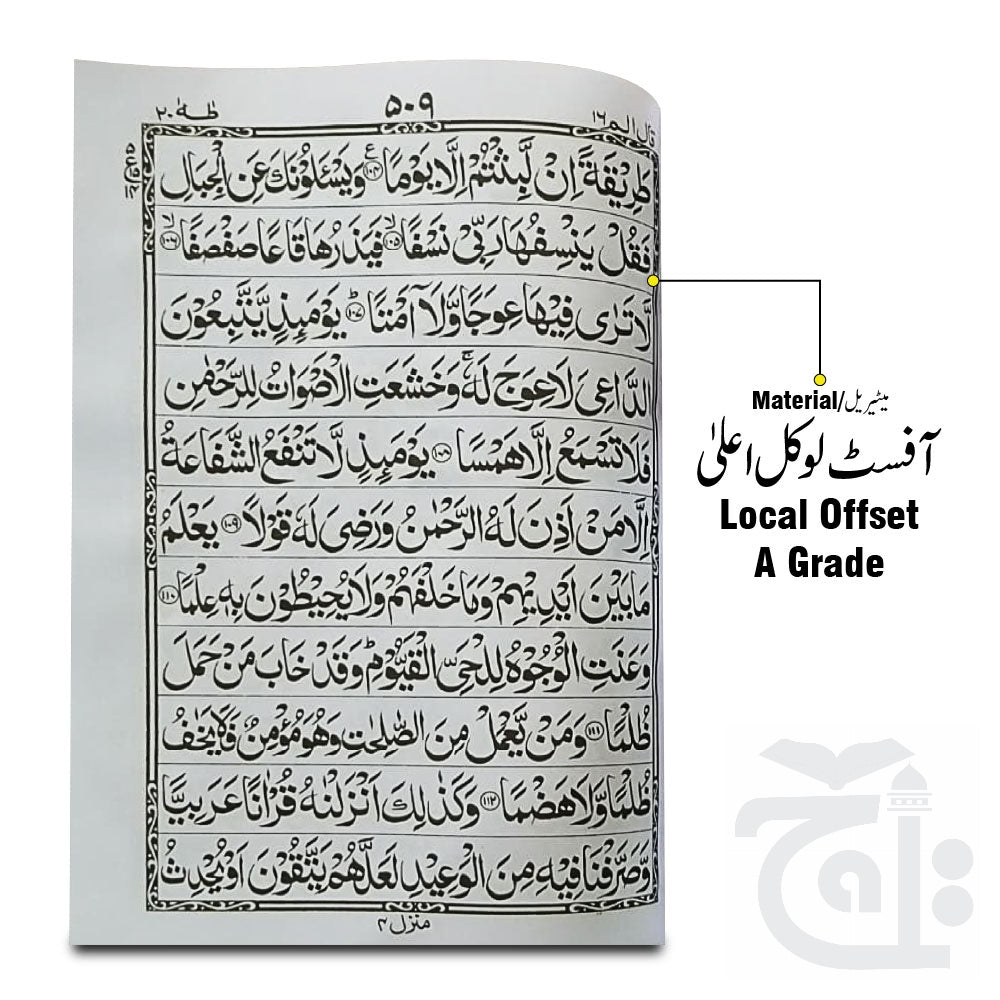 طٰهٰ ٢٠
۵۰۹
قال الم ١٦
طَرِيْقَةً اِنْ لَّبِثْتُمْ اِلَّا يَوْمًا ﴿١٠٤﴾ ع وَيَسْـَٔلُوْنَكَ عَنِ الْجِبَالِ
فَقُلْ يَنْسِفُهَا رَبِّيْ نَسْفًا ﴿١٠٥﴾ۙ فَيَذَرُهَا قَاعًا صَفْصَفًا ﴿١٠٦﴾ۙ
لَّا تَرٰى فِيْهَا عِوَجًا وَّلَآ اَمْتًا ﴿١٠٧﴾ؕ يَوْمَئِذٍ يَّتَّبِعُوْنَ
الدَّاعِىَ لَا عِوَجَ لَهٗ ۚ وَخَشَعَتِ الْاَصْوَاتُ لِلرَّحْمٰنِ
فَلَا تَسْمَعُ اِلَّا هَمْسًا ﴿١٠٨﴾ يَوْمَئِذٍ لَّا تَنْفَعُ الشَّفَاعَةُ
اِلَّا مَنْ اَذِنَ لَهُ الرَّحْمٰنُ وَرَضِىَ لَهٗ قَوْلًا ﴿١٠٩﴾ يَعْلَمُ
مَا بَيْنَ اَيْدِيْهِمْ وَمَا خَلْفَهُمْ وَلَا يُحِيْطُوْنَ بِهٖ عِلْمًا ﴿١١٠﴾
وَعَنَتِ الْوُجُوْهُ لِلْحَىِّ الْقَيُّوْمِ ؕ وَقَدْ خَابَ مَنْ حَمَلَ
ظُلْمًا ﴿١١١﴾ وَمَنْ يَّعْمَلْ مِنَ الصّٰلِحٰتِ وَهُوَ مُؤْمِنٌ فَلَا يَخٰفُ
ظُلْمًا وَّلَا هَضْمًا ﴿١١٢﴾ وَكَذٰلِكَ اَنْزَلْنٰهُ قُرْاٰنًا عَرَبِيًّا
وَّصَرَّفْنَا فِيْهِ مِنَ الْوَعِيْدِ لَعَلَّهُمْ يَتَّقُوْنَ اَوْ يُحْدِثُ
منزل ۴
Material/میٹیریل
آفسٹ لوکل اعلیٰ
Local Offset
A Grade
تاج